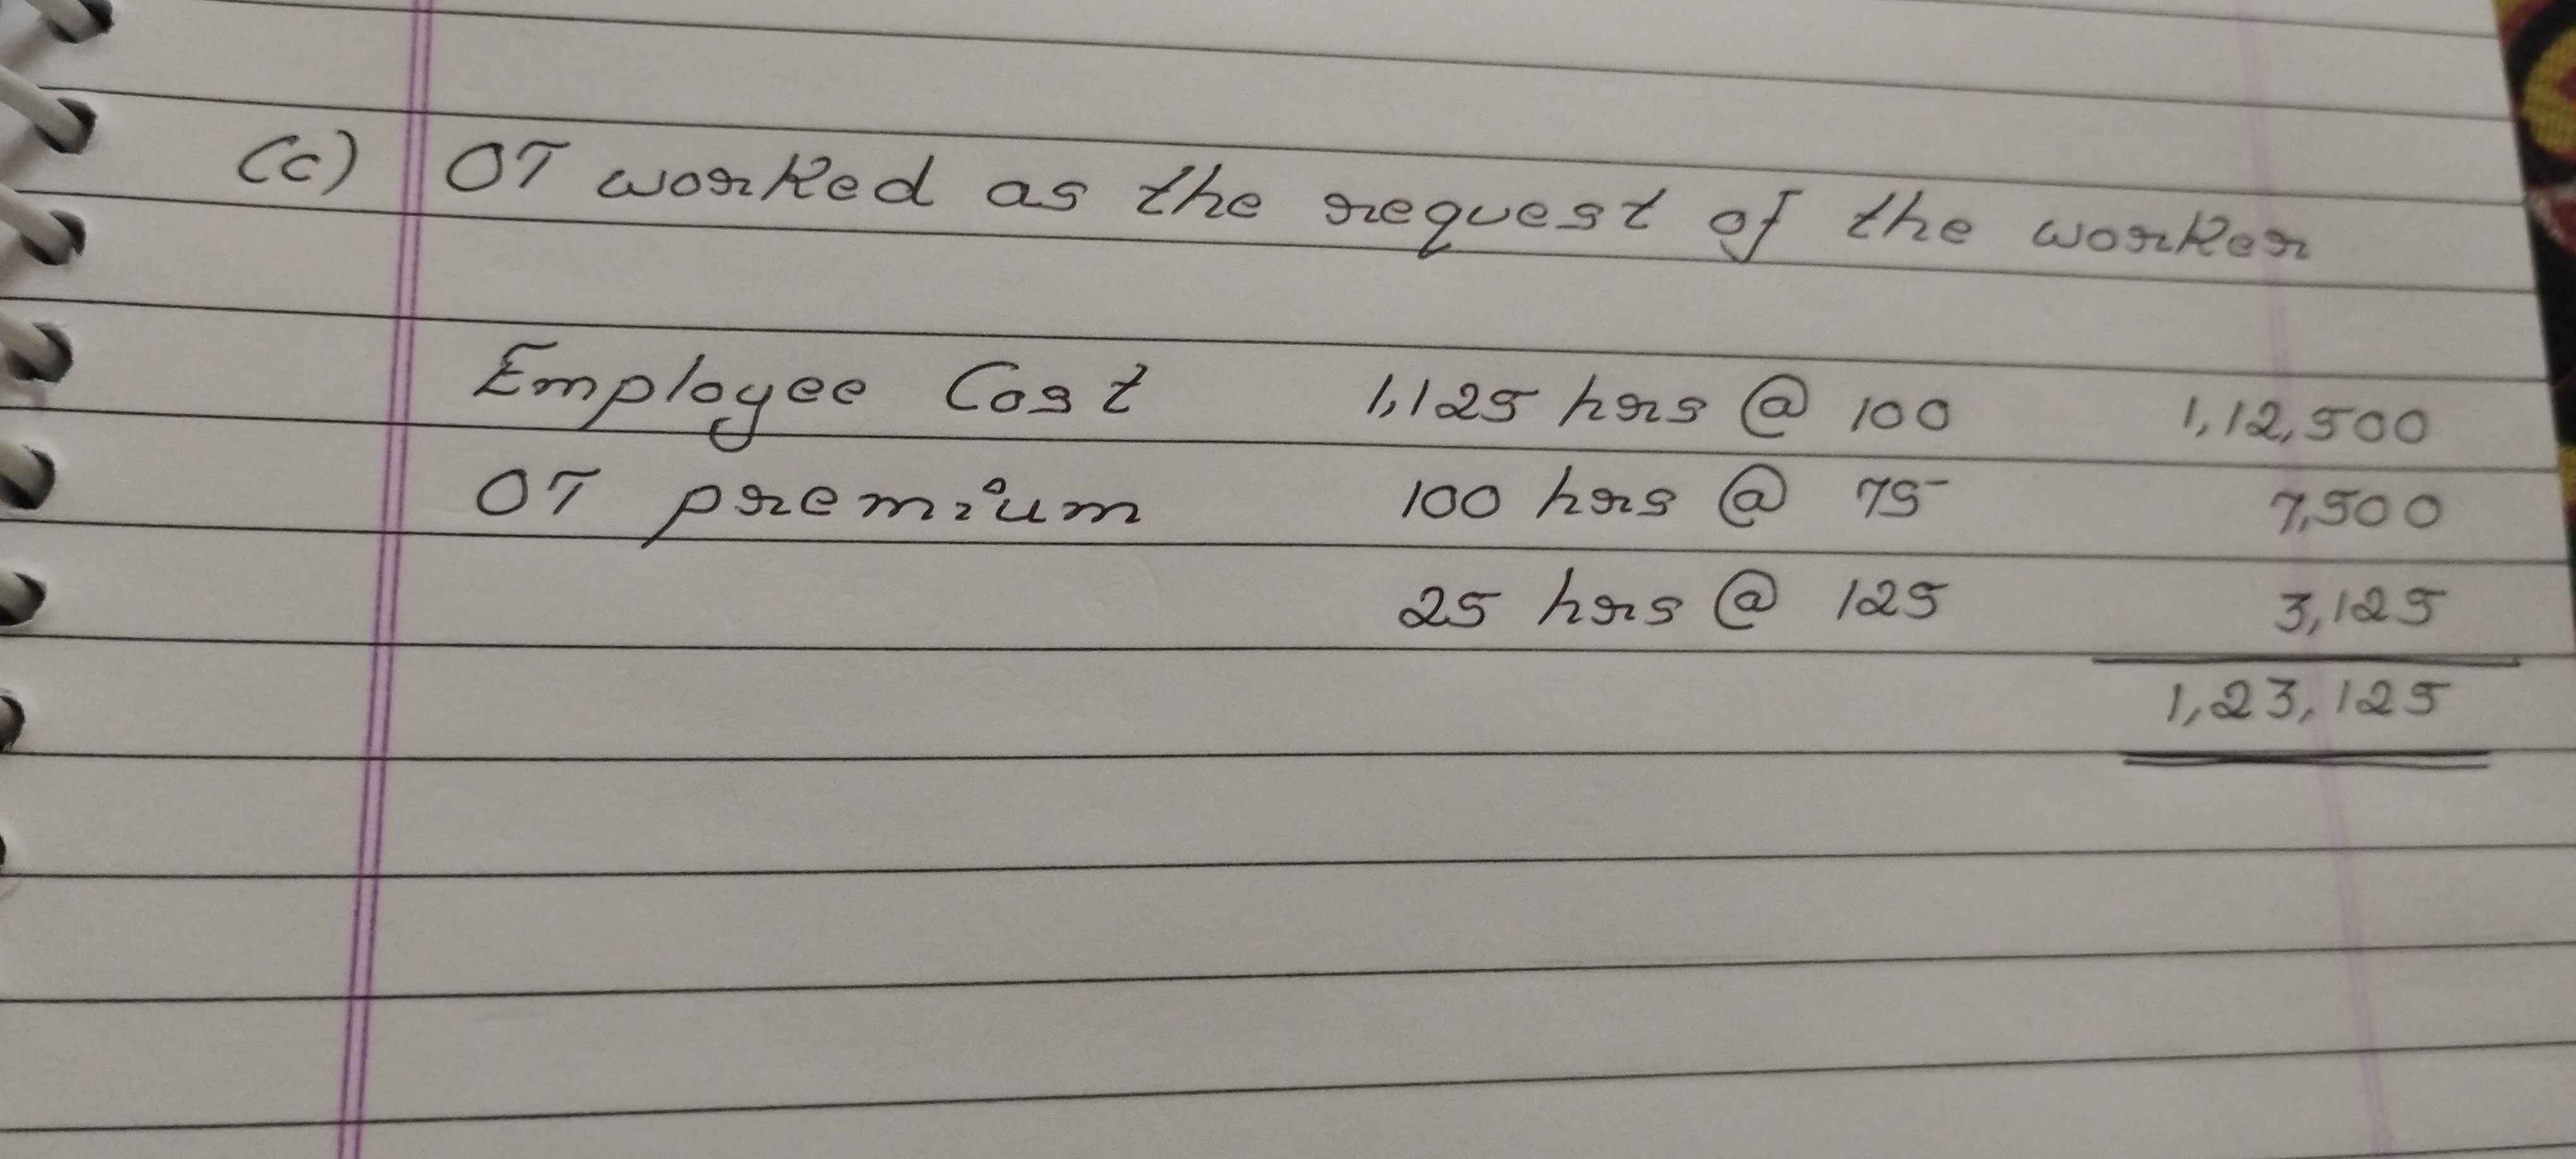 (c) OT worked as the request of the worker
Employee Cost 1,125 hrs @ 100 1,12,500
OT premium 100 hrs @ 75 7,500
25 hrs @ 125 3,125
1,23,125